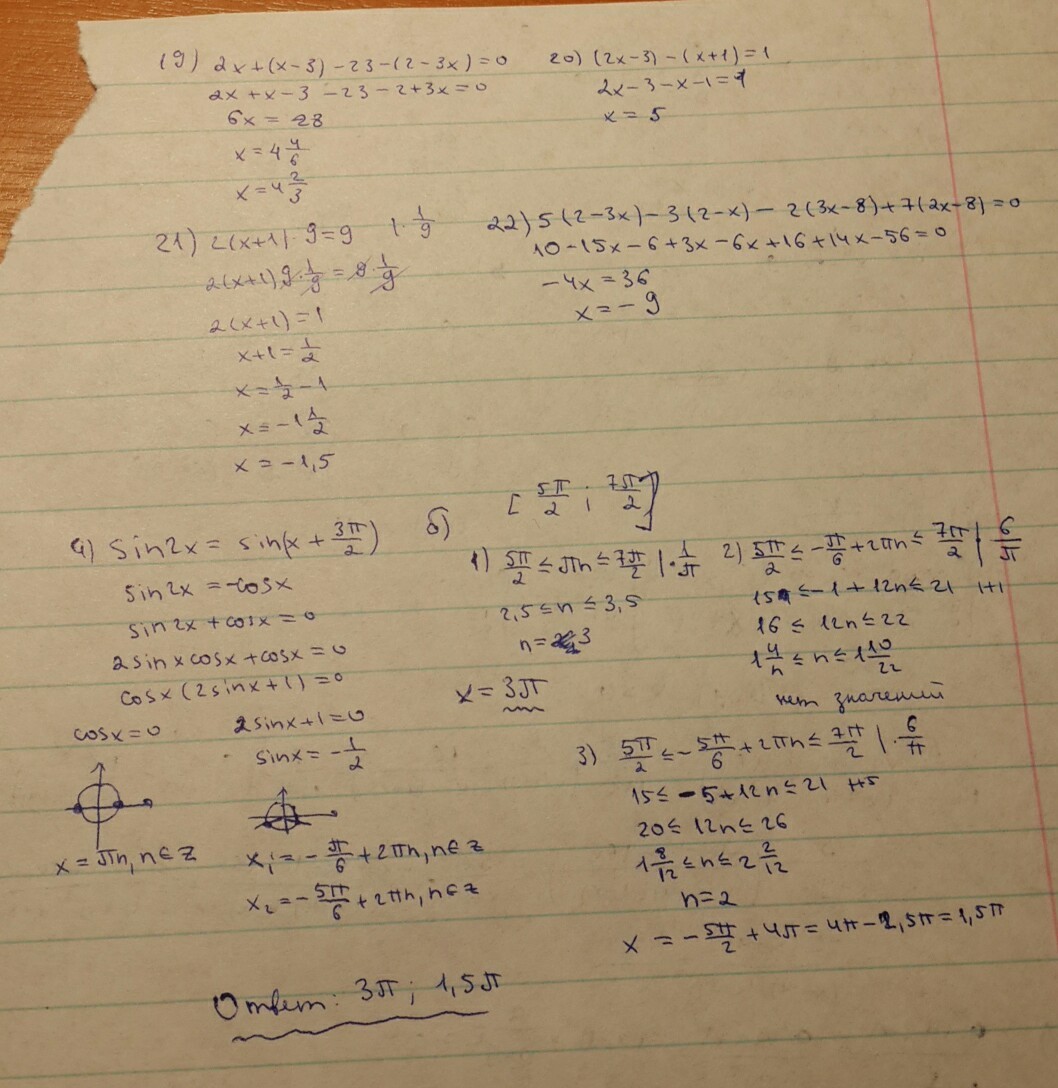 19) 2x+(x-3)-23-(2-3x)=0
2x+x-3-23-2+3x=0
6x=28
x=4 4/6
x=4 2/3
20) (2x-3)-(x+1)=1
2x-3-x-1=1
x=5
21) 2(x+1)·9=9 |·1/9
2(x+1)9·1/9=9·1/9
2(x+1)=1
x+1=1/2
x=1/2-1
x=-1 1/2
x=-1,5
22) 5(2-3x)-3(2-x)-2(3x-8)+7(2x-8)=0
10-15x-6+3x-6x+16+14x-56=0
-4x=36
x=-9
a) sin2x=sin(x+3π/2)
sin2x=-cosx
sin2x+cosx=0
2sinxcosx+cosx=0
cosx(2sinx+1)=0
cosx=0 2sinx+1=0
sinx=-1/2
x=πn, n∈Z
x₁=-π/6+2πn, n∈Z
x₂=-5π/6+2πn, n∈Z
б) [5π/2; 7π/2]
1) 5π/2≤πn≤7π/2 |·1/π
2,5≤n≤3,5
n=3
x=3π
2) 5π/2≤-π/6+2πn≤7π/2 |·6/π
15≤-1+12n≤21 |+1
16≤12n≤22
1 4/n≤n≤1 10/22
нет значений
3) 5π/2≤-5π/6+2πn≤7π/2 |·6/π
15≤-5+12n≤21 |+5
20≤12n≤26
1 8/12≤n≤2 2/12
n=2
x=-5π/2+4π=4π-2,5π=1,5π
Ответ: 3π; 1,5π